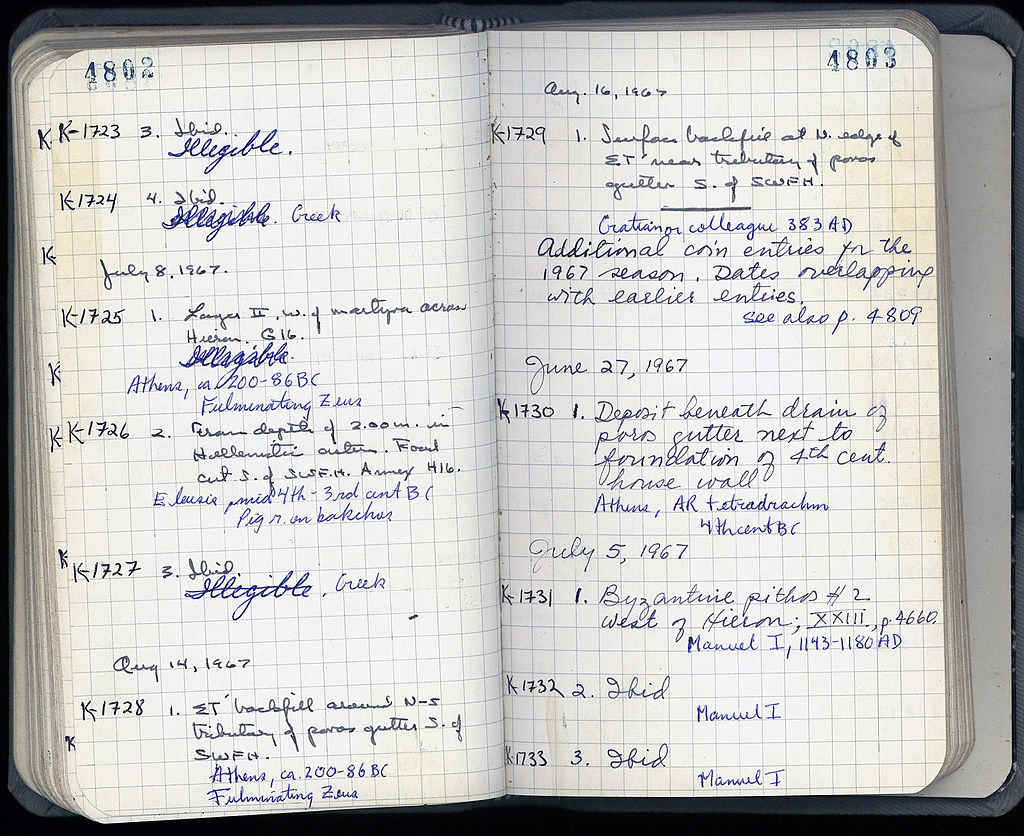 4802
K K-1723 3. Ibid.
Illegible.
K-1724 4. Ibid.
Illegible. Greek
K
July 8, 1967.
K-1725 1. Layer II, W. of martyra across
Hieron. G16.
K Illegible.
Athens, ca. 200-86 BC
Fulminating Zeus
K K-1726 2. From depth of 2.00 m. in
Hellenistic cistern. Food
cut S. of SWFH. Annex H16.
Eleusis, mid 4th - 3rd cent BC
Pig r. on bakchos
K K-1727 3. Ibid.
Illegible. Greek
Aug 14, 1967
K-1728 1. ET backfill around N-S
K tributary of poros gutter S. of
SWFH.
Athens, ca. 200-86 BC
Fulminating Zeus
4803
Aug. 16, 1967
K-1729 1. Surface backfill at N. edge of
ET near tributary of poros
gutter S. of SWFH.
Gratian or colleague 383 AD
Additional coin entries for the
1967 season. Dates overlapping
with earlier entries.
see also p. 4809
June 27, 1967
K-1730 1. Deposit beneath drain of
poros gutter next to
foundation of 4th cent.
house wall
Athens, AR tetradrachm
4th cent BC
July 5, 1967
K-1731 1. Byzantine pithos #2
west of Hieron; XXIII, p. 4660.
Manuel I, 1143-1180 AD
K-1732 2. Ibid
Manuel I
K-1733 3. Ibid
Manuel I